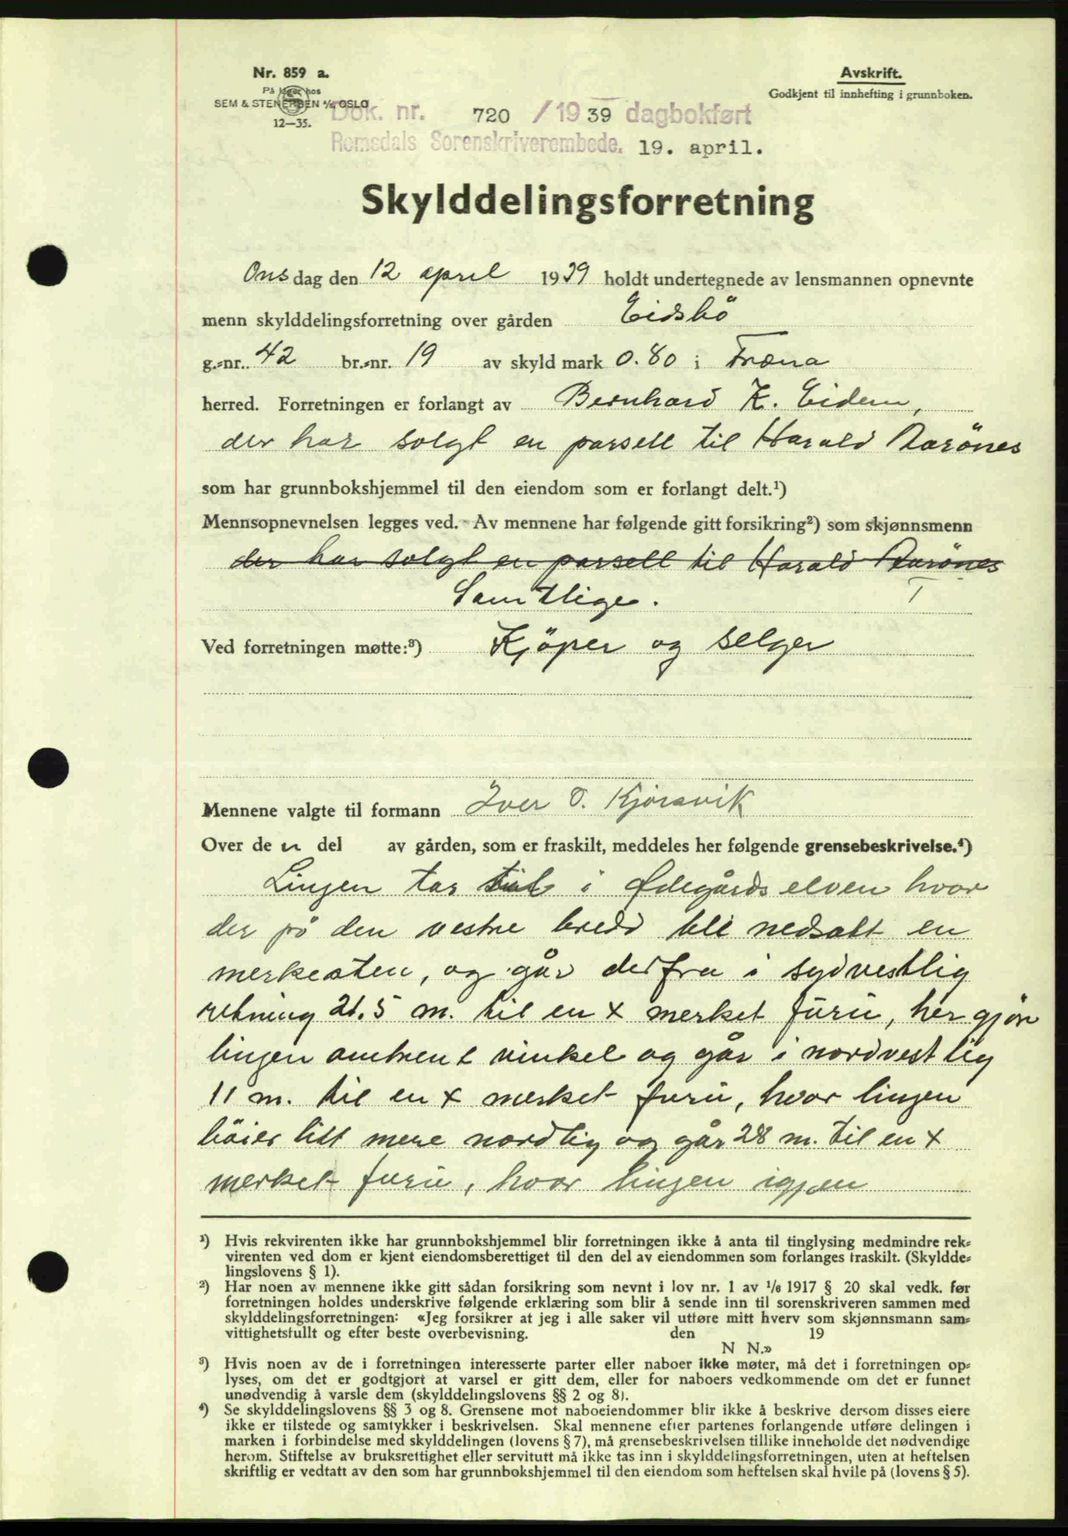 Nr. 859 a.
På lager hos
SEM & STENERSEN A/S OSLO
12—35.
Avskrift.
Godkjent til innhefting i grunnboken.
Dok. nr. 720 / 1939 dagbokført
Romsdals Sorenskriverembede. 19. april.
Skylddelingsforretning
Onsdag den 12 april 1939 holdt undertegnede av lensmannen opnevnte
menn skylddelingsforretning over gården Eidsbö
g.-nr. 42 br.-nr. 19 av skyld mark 0.80 i Fræna
herred. Forretningen er forlangt av Bernhard K. Eidem,
der har solgt en parsell til Harald Aarönes
som har grunnbokshjemmel til den eiendom som er forlangt delt.¹)
Mennsopnevnelsen legges ved. - Av mennene har følgende gitt forsikring²) som skjønnsmenn
der har solgt en parsell til Harald Aarönes
Samtlige.
Ved forretningen møtte:³) Kjöper og selger
Mennene valgte til formann Iver O. Kjørsvik
Over de n del av gården, som er fraskilt, meddeles her følgende grensebeskrivelse.⁴)
Linjen tar i Ødegårdselven hvor
der på den vestre bredd ble nedsatt en
merkesten, og går derfra i sydvestlig
retning 21.5 m. til en x merket furu, her gjör
linjen omtrent vinkel og går i nordvestlig
11 m. til en x merket furu, hvor linjen
böier litt mere nordlig og går 28 m. til en x
merket furu, hvor linjen igjen
¹) Hvis rekvirenten ikke har grunnbokshjemmel blir forretningen ikke å anta til tinglysing medmindre rek-
virenten ved dom er kjent eiendomsberettiget til den del av eiendommen som forlanges fraskilt. (Skyldde-
lingslovens § 1).
²) Har noen av mennene ikke gitt sådan forsikring som nevnt i lov nr. 1 av 1/6 1917 § 20 skal vedk. før
forretningen holdes underskrive følgende erklæring som blir å sende inn til sorenskriveren sammen med
skylddelingsforretningen: «Jeg forsikrer at jeg i alle saker vil utføre mitt hverv som skjønnsmann sam-
vittighetsfullt og efter beste overbevisning. den 19
N N.»
³) Hvis noen av de i forretningen interesserte parter eller naboer ikke møter, må det i forretningen op-
lyses, om det er godtgjort at varsel er gitt dem, eller for naboers vedkommende om det er funnet
unødvendig å varsle dem (skylddelingslovens §§ 2 og 8).
⁴) Se skylddelingslovens §§ 3 og 8. Grensene mot naboeiendommer blir ikke å beskrive dersom disses eiere
ikke er tilstede og samtykker i beskrivelsen. Skal mennene efter partenes forlangende utføre delingen i
marken i forbindelse med skylddelingen (lovens § 7), må grensebeskrivelsen tillike inneholde det nødvendige
herom. Stiftelse av bruksrettighet eller servitutt må ikke tas inn i skylddelingsforretningen, uten at heftelsen
skriftlig er vedtatt av den som har grunnbokshjemmel til den eiendom som heftelsen skal hvile på (lovens § 5).